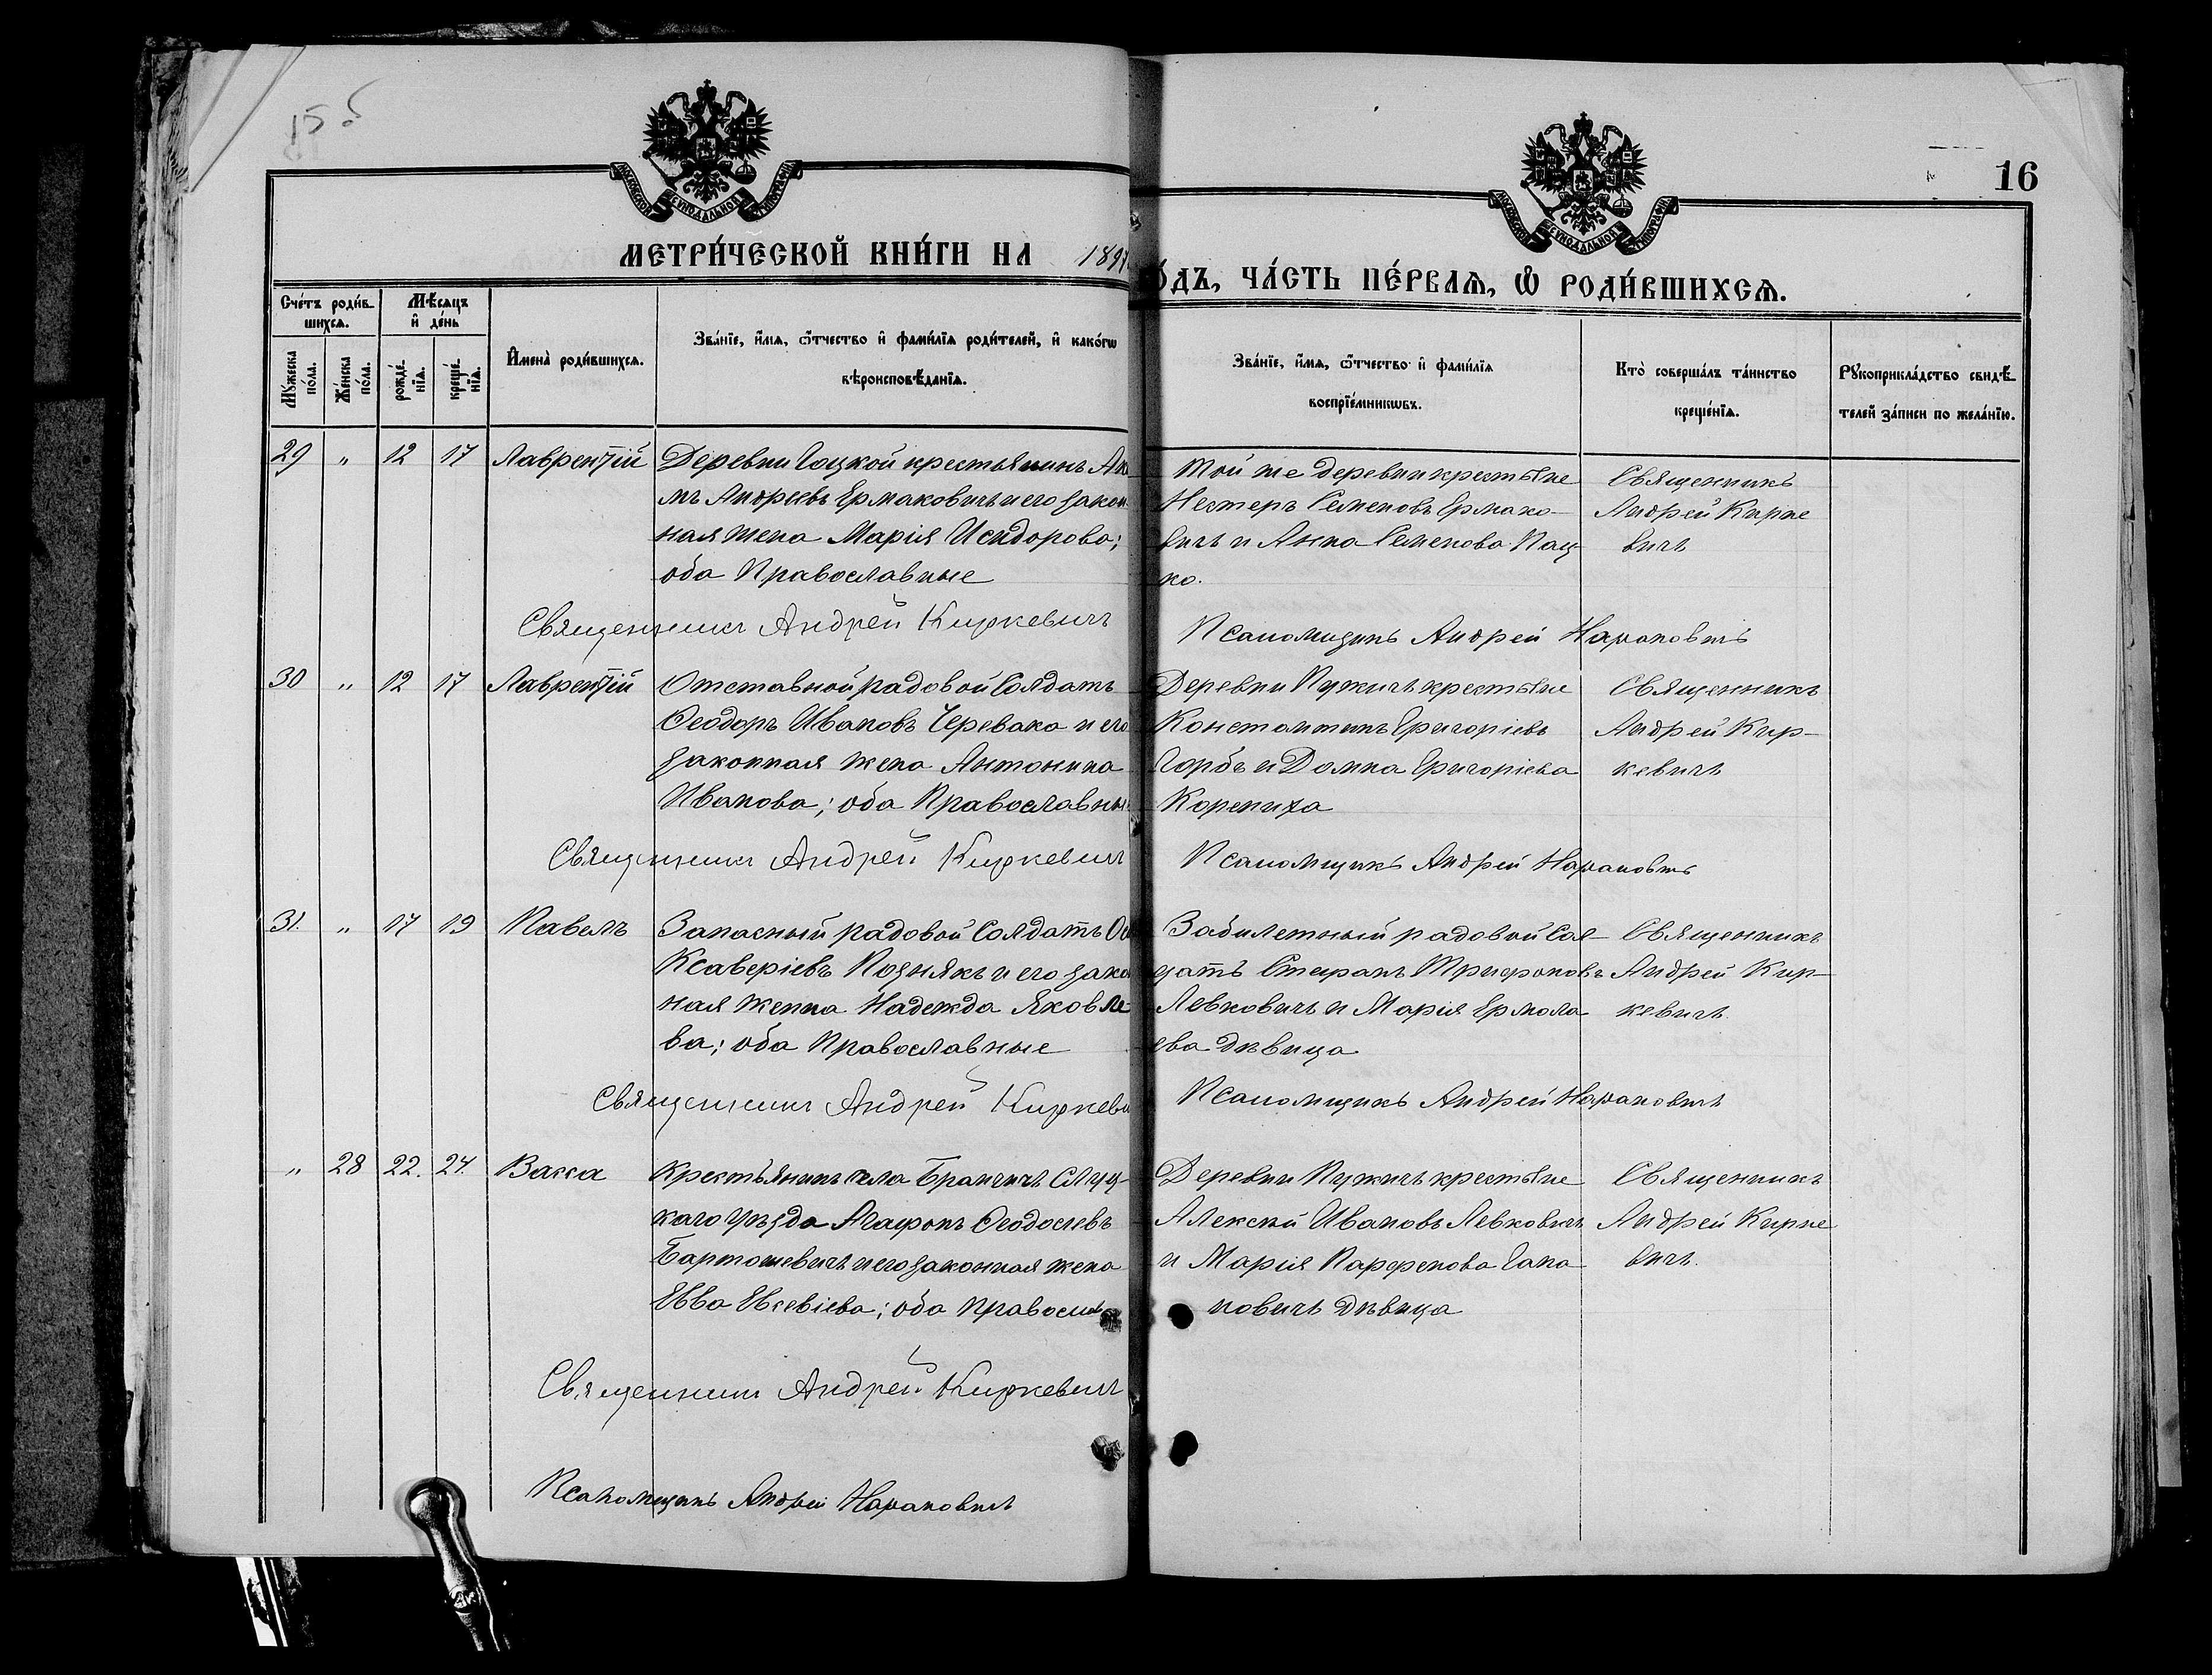 15 об
16
МЕТРИ́ЧЕСКОЙ КНИ́ГИ НА 1897
О́ДЪ, ЧА́СТЬ ПЕ́РВАѦ, Ѿ РОДИ́ВШИХСѦ.
Сче́тъ роди́в-
шихсѧ.
Мѣ́сѧцъ
и҆ де́нь
Мꙋ́жеска по́ла.
Же́нска по́ла.
рожде́-нїѧ.
креще́-нїѧ.
И҆мена̀ роди́вшихсѧ.
Зва́нїе, и҆́мѧ, ѻ҆́тчество и҆ фами́лїѧ роди́телей, и҆ како́гѡ
вѣроисповѣ́данїѧ.
Зва́нїе, и҆́мѧ, ѻ҆́тчество и҆ фами́лїѧ
воспрїе́мникѡвъ.
Кто̀ соверша́лъ та́инство
креще́нїѧ.
Рꙋкоприкла́дство свидѣ́-
телей за́писи по жела́нїю.
29 " 12 17 Лаврентій
Деревни Гоцкой крестьянинъ Аки
мъ Андреевъ Ермаковичъ и его закон
ная жена Марія Исидорова;
оба Православные
Той же деревни крестьяне
Нестеръ Семеновъ Ермако-
вичъ и Анна Семенова Пац-
ко.
Священникъ
Андрей Кирке
вичъ
Священникъ Андрей Киркевичъ
Псаломщикъ Андрей
30 " 12 17 Лаврентій
Отставной рядовой Солдатъ
Ѳеодоръ Ивановъ Черевако и его
законная жена Антонина
Иванова; оба Православны
Деревни Пужичъ крестьяне
Константинъ Григоріевъ
Горбъ и Домна Григоріева
Корениха
Священникъ
Андрей Кир-
кевичъ
Священникъ Андрей Киркевичъ
Псаломщикъ Андрей
31. " 17 19 Павелъ
Запасный рядовой Солдатъ
Ксаверіевъ Позднякъ и его закон
ная женна Надежда Яковле
ва; оба Православные
Забилетный рядовой Сол-
датъ Стефанъ Трифоновъ
Левковичъ и Марія Ермола
ева дѣвица
Священникъ
Андрей Кир-
кевичъ
Священникъ Андрей Киркеви
Псаломщикъ Андрей
" 28 22. 24. Васса
Крестьянинъ села Бранчичъ Слуц-
каго уѣзда Агафонъ Ѳеодосіевъ
Бартошевичъ и его законная жена
Евва Евсевіева; оба Правосла
Деревни Пужичъ крестьяне
Алексѣй Ивановъ Левковичъ
и Марія Парфенова Гапа
новичъ дѣвица
Священникъ
Андрей Кирке
вичъ.
Священникъ Андрей Киркевичъ
Псаломщикъ Андрей